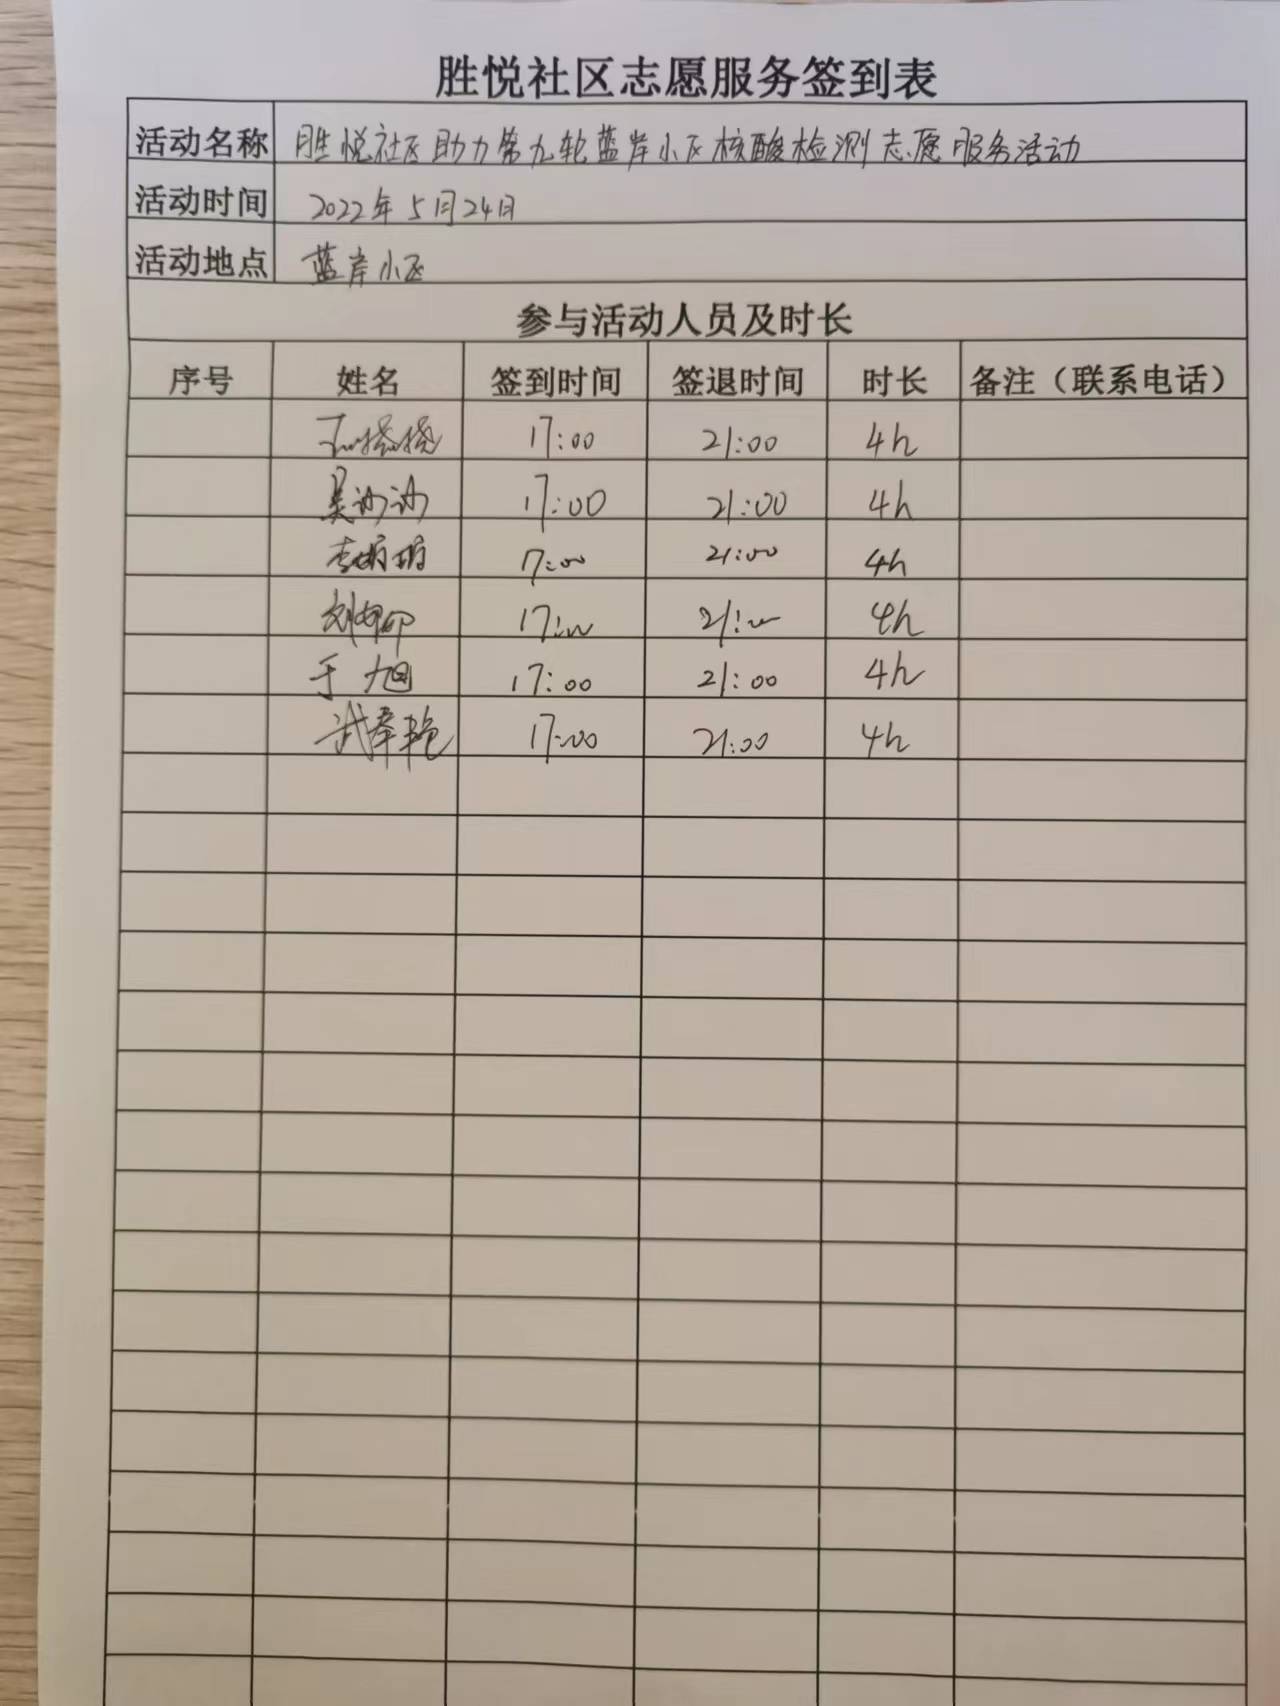 胜悦社区志愿服务签到表
活动名称 胜悦社区助力第九轮蓝岸小区核酸检测志愿服务活动
活动时间 2022年5月24日
活动地点 蓝岸小区
参与活动人员及时长
序号 姓名 签到时间 签退时间 时长 备注（联系电话）
17:00 21:00 4h
吴 17:00 21:00 4h
李娟娟 17:00 21:00 4h
刘 17:00 21:00 4h
于旭 17:00 21:00 4h
武春艳 17:00 21:00 4h